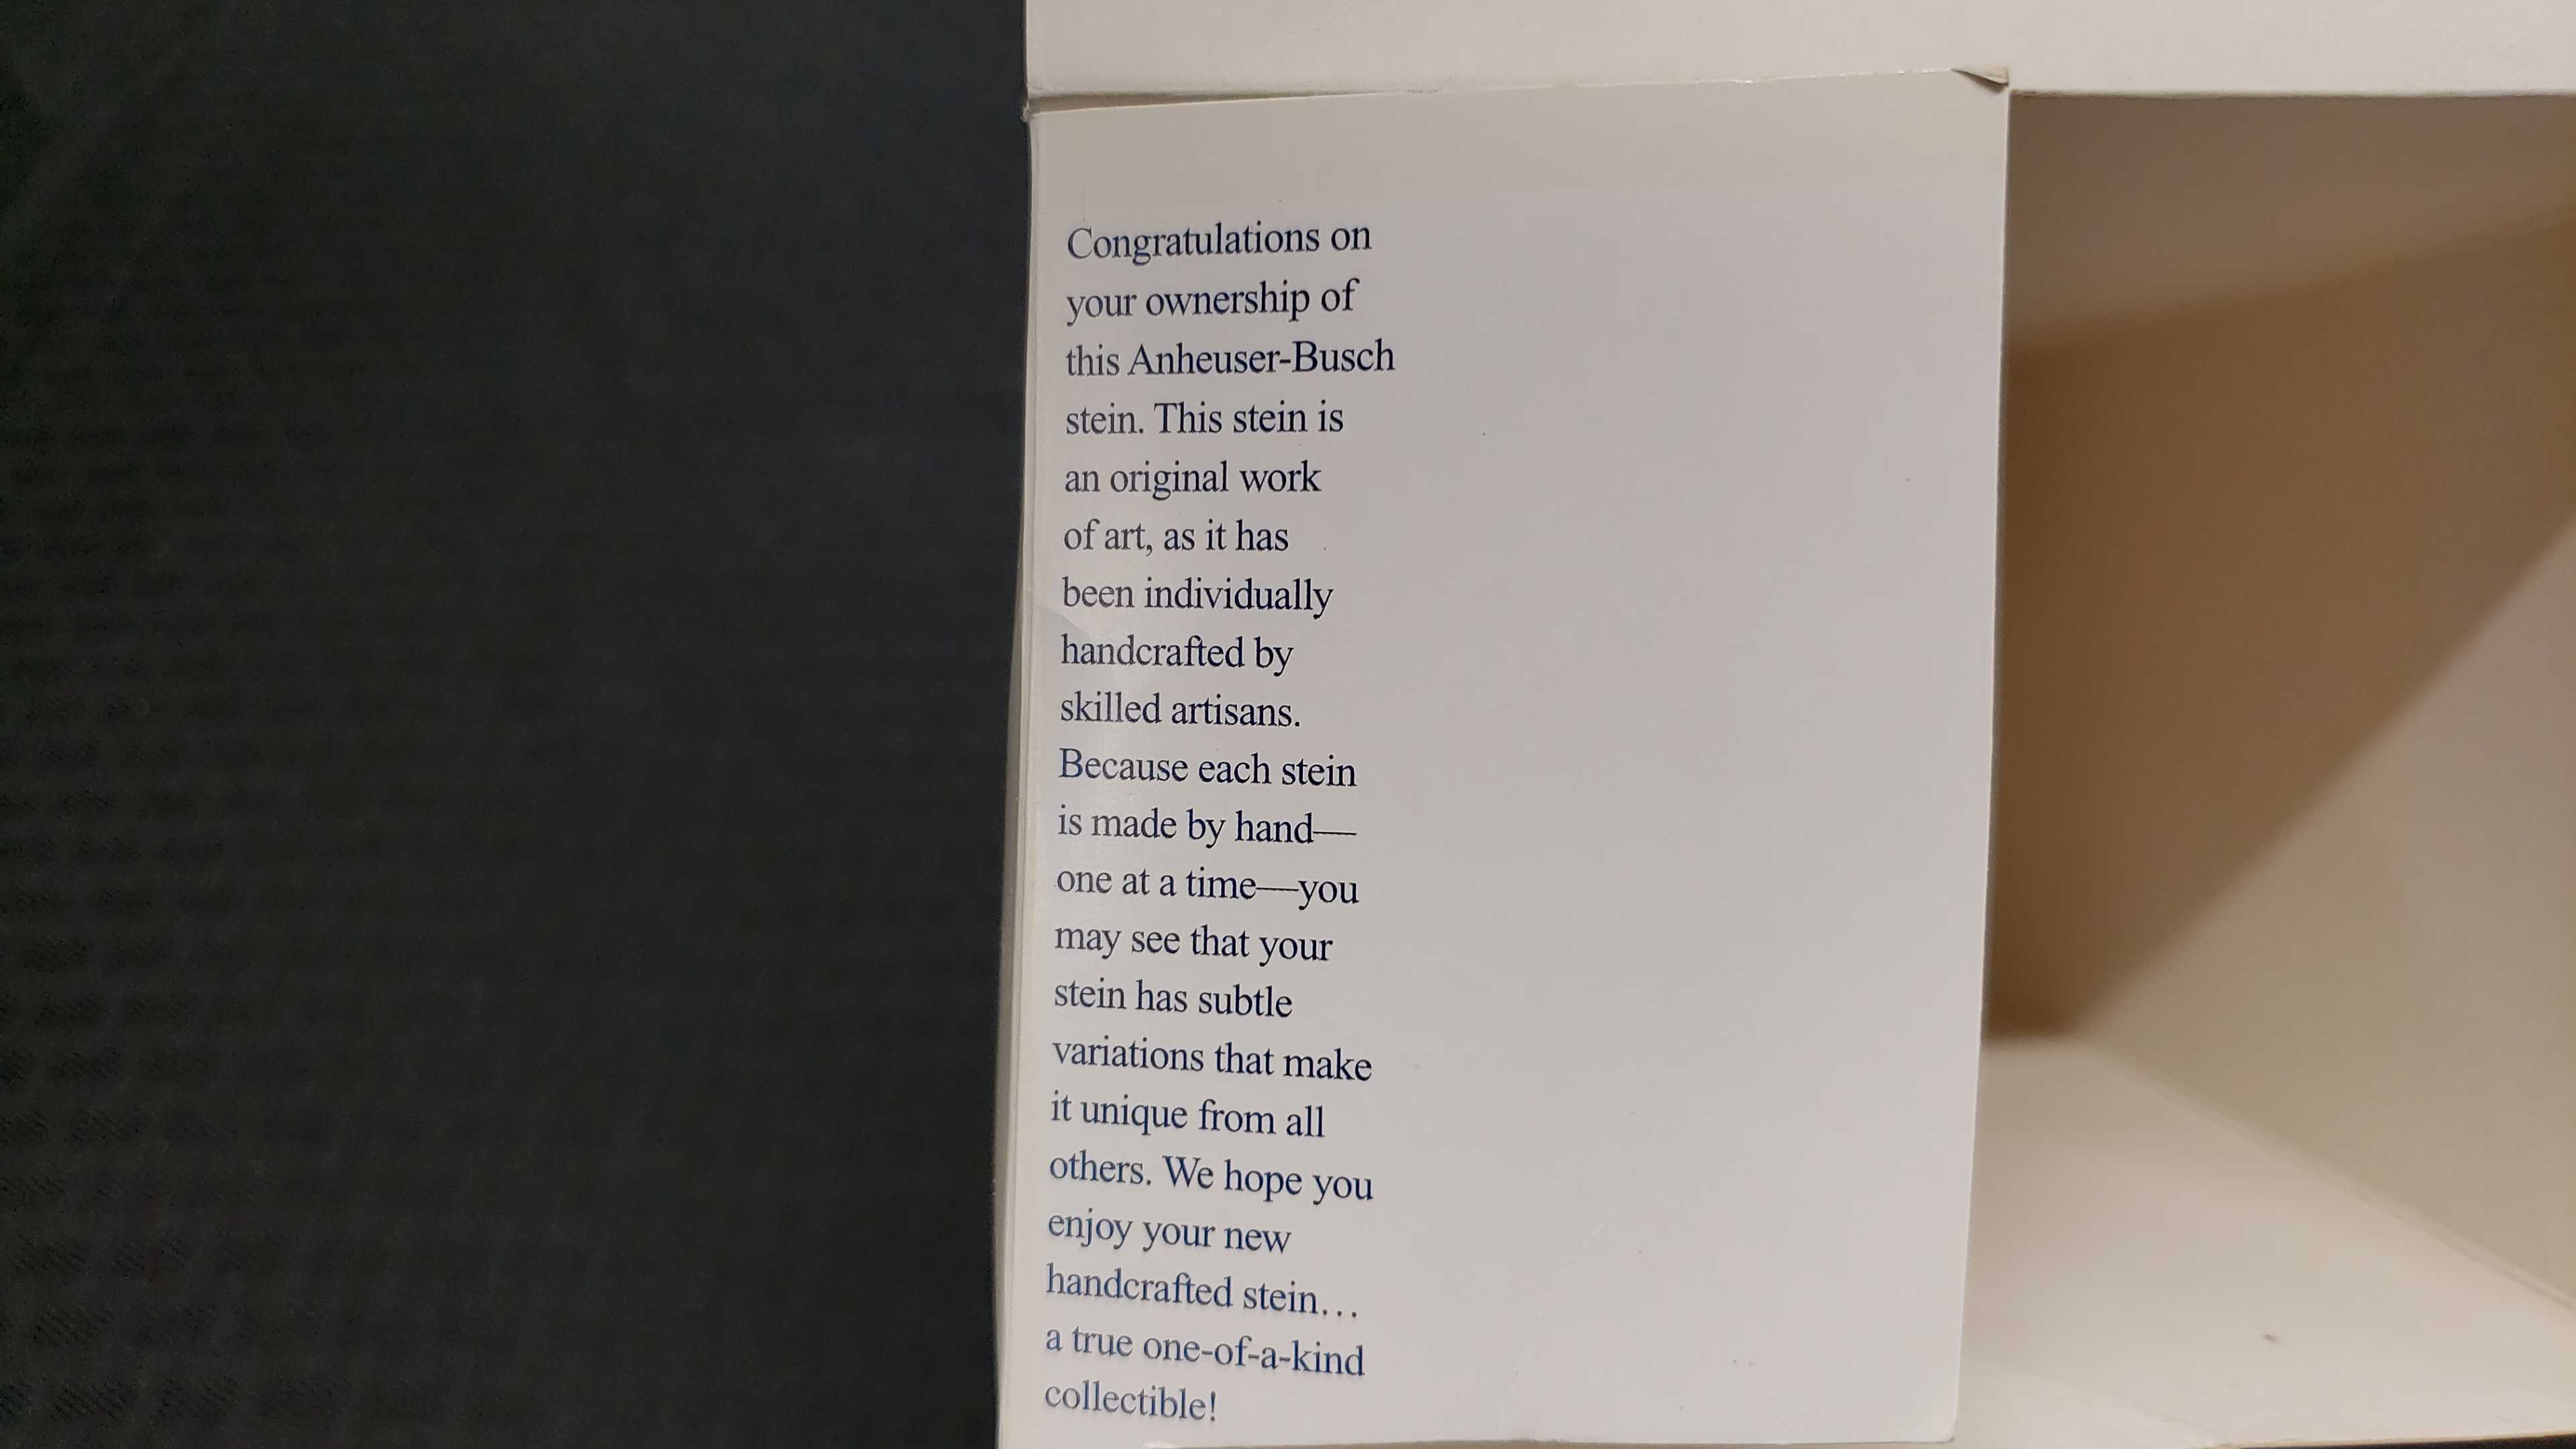 Congratulations on
your ownership of
this Anheuser-Busch
stein. This stein is
an original work
of art, as it has
been individually
handcrafted by
skilled artisans.
Because each stein
is made by hand—
one at a time—you
may see that your
stein has subtle
variations that make
it unique from all
others. We hope you
enjoy your new
handcrafted stein...
a true one-of-a-kind
collectible!